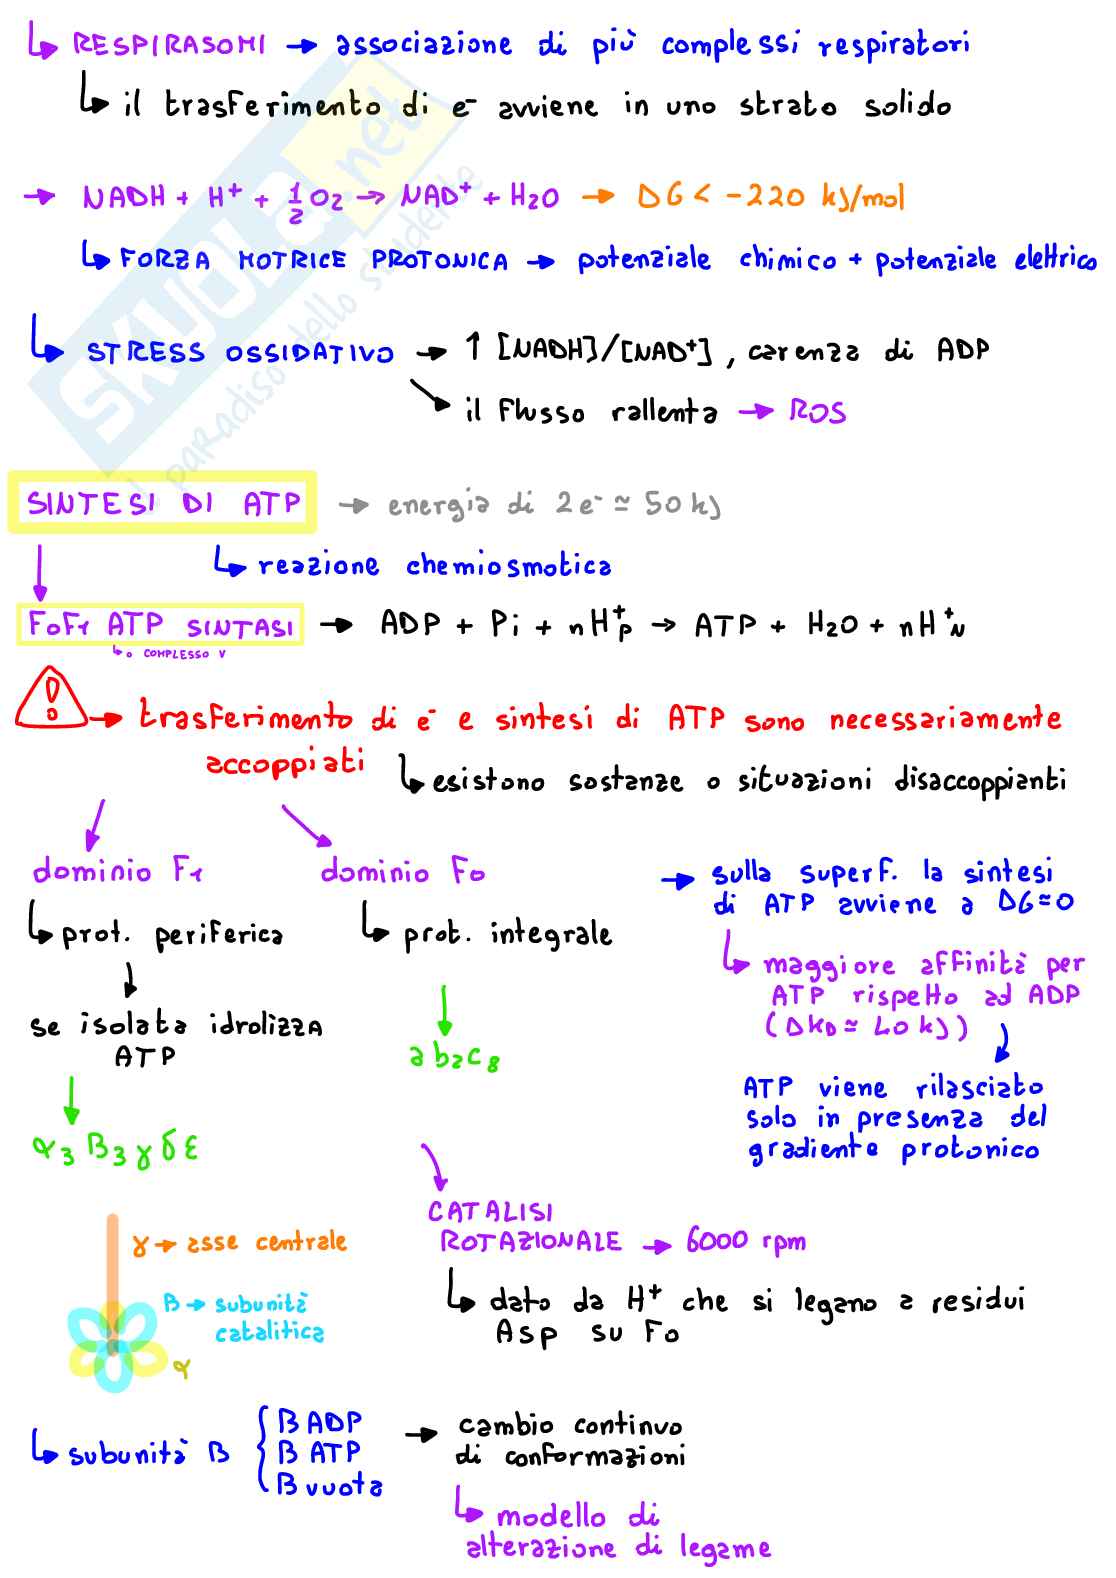 ↳ RESPIRASOMI → associazione di più complessi respiratori
↳ il trasferimento di e⁻ avviene in uno strato solido
→ NADH + H⁺ + 1/2 O₂ → NAD⁺ + H₂O → ΔG < -220 kJ/mol
↳ FORZA MOTRICE PROTONICA → potenziale chimico + potenziale elettrico
↳ STRESS OSSIDATIVO → ↑ [NADH]/[NAD⁺], carenza di ADP
↘ il flusso rallenta → ROS
SINTESI DI ATP → energia di 2e⁻ ≃ 50 kJ
↳ reazione chemiosmotica
F₀F₁ ATP SINTASI → ADP + Pi + nH⁺p → ATP + H₂O + nH⁺N
↳ o COMPLESSO V
! → trasferimento di e⁻ e sintesi di ATP sono necessariamente
accoppiati
↳ esistono sostanze o situazioni disaccoppianti
dominio F₁
↳ prot. periferica
se isolata idrolizza
ATP
α₃ β₃ γ δ ε
dominio F₀
↳ prot. integrale
ab₂c₈
→ sulla superf. la sintesi
di ATP avviene a ΔG≃0
↳ maggiore affinità per
ATP rispetto ad ADP
(ΔKD ≃ 40 kJ)
ATP viene rilasciato
solo in presenza del
gradiente protonico
CATALISI
ROTAZIONALE → 6000 rpm
↳ dato da H⁺ che si legano a residui
Asp su F₀
γ → asse centrale
β → subunità
catalitica
α
↳ subunità β { β ADP
β ATP
β vuota
→ cambio continuo
di conformazioni
↳ modello di
alterazione di legame
SKUOLA.net
il paradiso dello studente